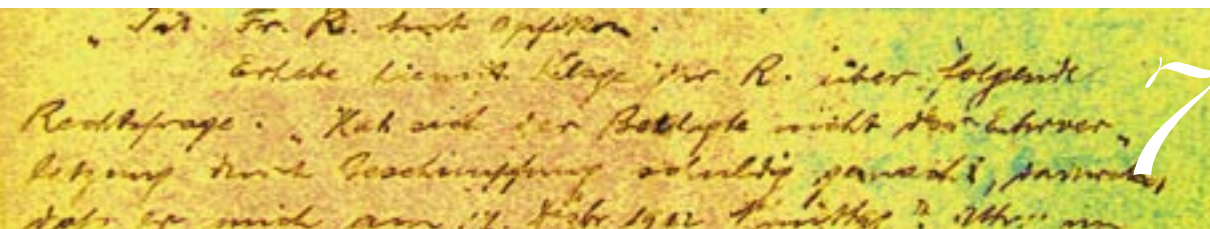 „ Frl. Fr. R. Amt Opfikon.
Erhebe hiemit Klage per R. über folgende
Rechtsfrage. „Hat sich der Beklagte nicht der Ehrver„
letzung durch Beschimpfung schuldig gemacht, dadurch,
daß er mich am 17. 1912
7